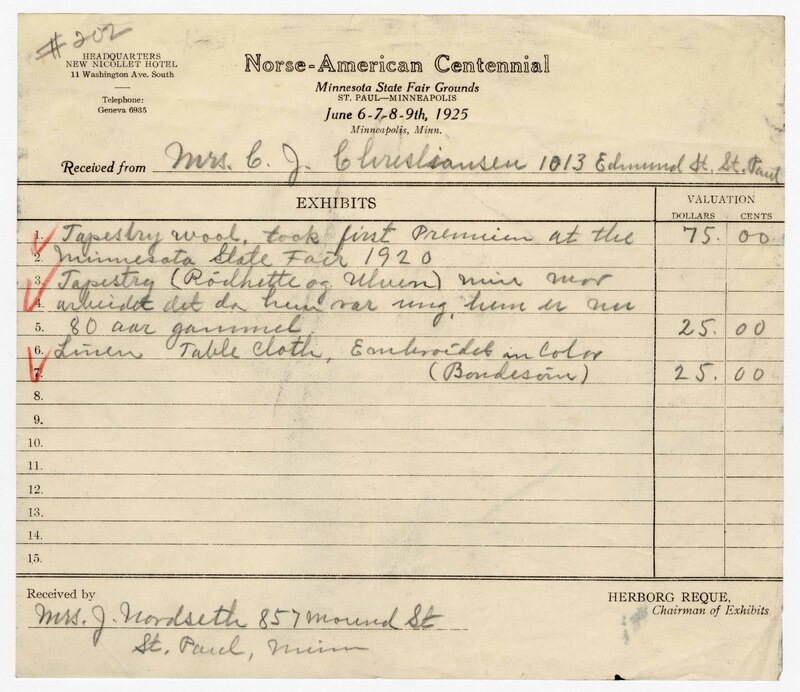 # 202
HEADQUARTERS
NEW NICOLLET HOTEL
11 Washington Ave. South
Telephone:
Geneva 6935
Norse-American Centennial
Minnesota State Fair Grounds
ST. PAUL—MINNEAPOLIS
June 6-7-8-9th, 1925
Minneapolis, Minn.
Received from Mrs. C. J. Christiansen 1013 Edmund St. St. Paul
EXHIBITS
VALUATION
DOLLARS CENTS
1. Tapestry wool, took first Premium at the 75. 00
2. Minnesota State Fair 1920
3. Tapestry (Rödhette og Ulven) min mor
4. arbeidet det da hun var ung, hun er nu
5. 80 aar gammel. 25. 00
6. Linen Table Cloth, Embroidet in Color
7. (Bondesöm) 25. 00
8.
9.
10.
11.
12.
13.
14.
15.
Received by
Mrs. J. Nordseth 857 Mound St
St. Paul, Minn
HERBORG REQUE,
Chairman of Exhibits